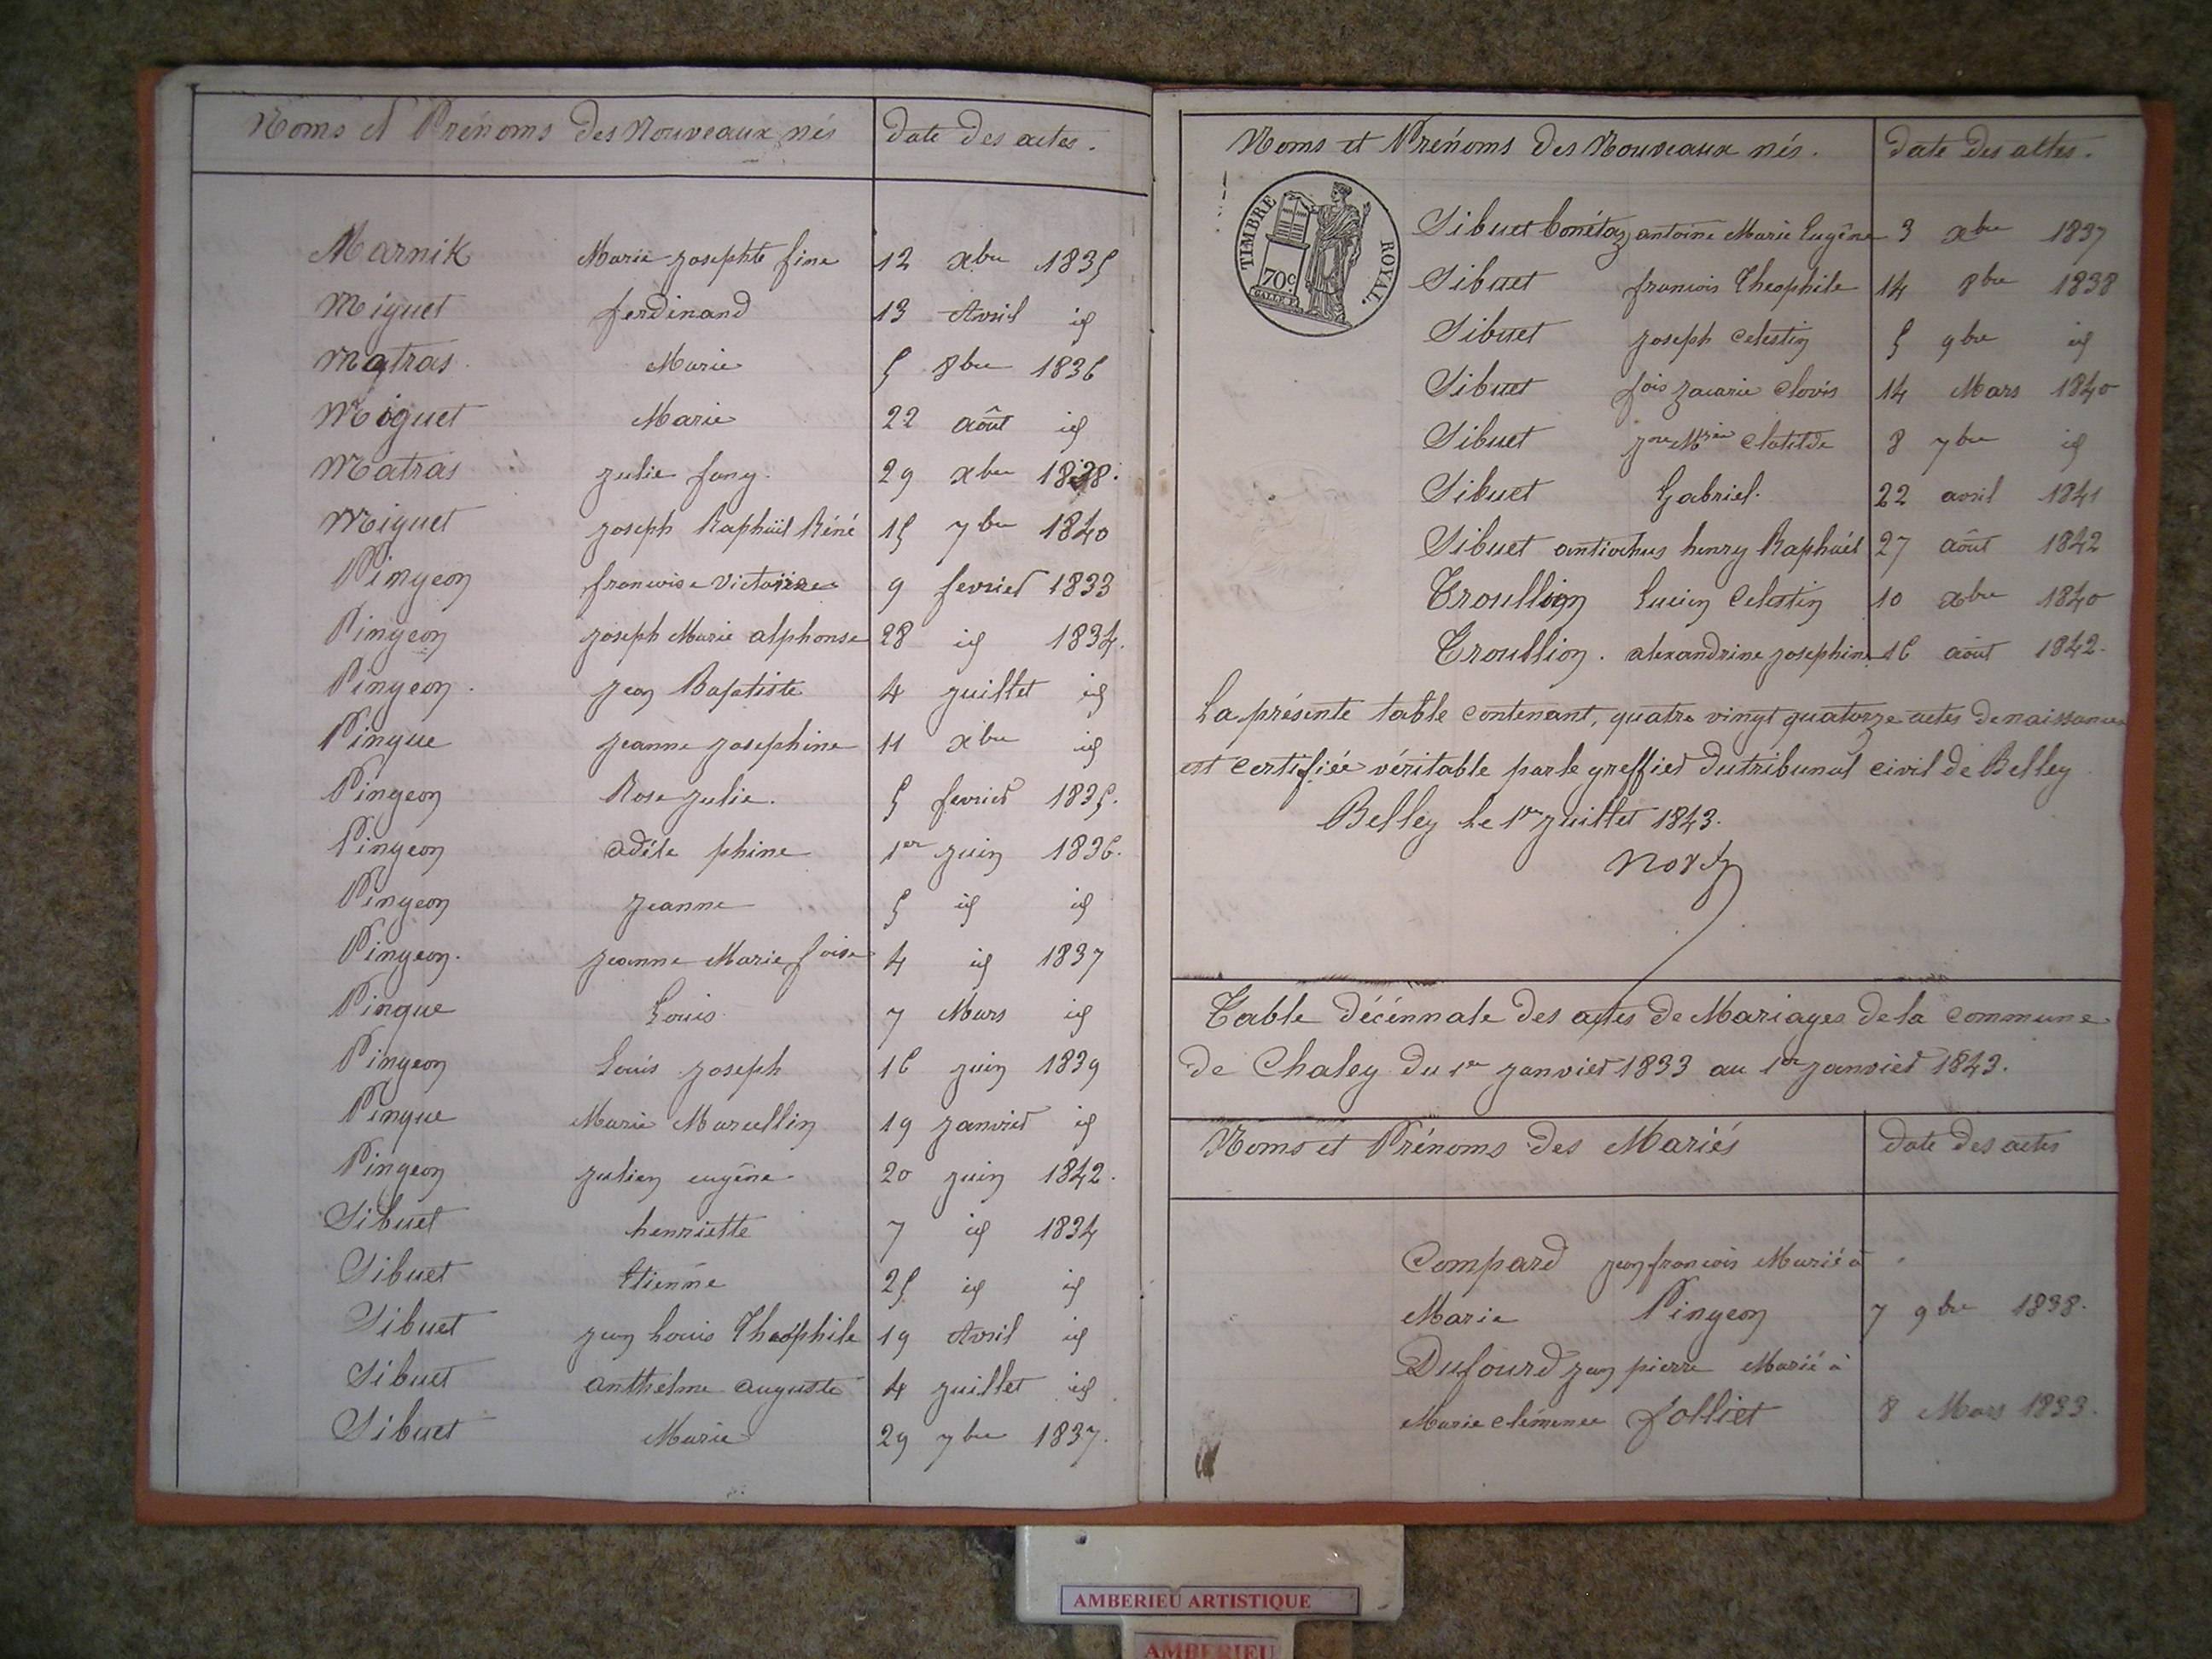 Noms et Prénoms des Nouveaux nés Date des actes.
Marnik Marie josephte fine 12 xbre 1835
Miguet ferdinand 13 Avril id
Matras Marie 5 8bre 1836
Miguet Marie 22 août id
Matras julie fany. 29 xbre 1838.
Miguet joseph Raphaël Réné 15 7bre 1840
Pingeon francoise Victoire 9 fevrier 1833
Pingeon joseph Marie alphonse 28 id 1834.
Pingeon. jean Baptiste 4 juillet id
Pingue jeanne josephine 11 xbre id
Pingeon Rose julie. 5 fevrier 1835.
Pingeon adéle phine 1er juin 1836.
Pingeon jeanne 5 id id
Pingeon. jeanne Marie foise 4 id 1837
Pingue Louis 7 Mars id
Pingeon Louis joseph 16 juin 1839
Pingue Marie Marcellin 19 janvier id
Pingeon julien eugêne 20 juin 1842.
Sibuet henriette 7 id 1834
Sibuet Etienne 25 id id
Sibuet jean Louis Théophile 19 Avril id
Sibuet anthelme auguste 4 juillet id
Sibuet Marie 29 7bre 1837.
Noms et Prénoms des Nouveaux nés. Date des actes.
TIMBRE ROYAL.
70c.
Sibuet bonétaz antoine Marie Eugêne 3 xbre 1837
Sibuet francois Theophile 14 8bre 1838
Sibuet joseph Celestin 5 9bre id
Sibuet fois zacarie Clovis 14 Mars 1840
Sibuet jne Mrie Clotilde 8 7bre id
Sibuet Gabriel. 22 avril 1841
Sibuet antiochus henry Raphaël 27 août 1842
Troullion Lucien Celestin 10 xbre 1840
Troullion. alexandrine josephine 16 août 1842.
La présente table contenant, quatre vingt quatorze actes de naissances
est certifiée véritable par le greffier du tribunal civil de Belley
Belley le 1er juillet 1843.
Table décénnale des actes de Mariages de la commune
de Chaley du 1er janvier 1833 au 1er janvier 1843.
Noms et Prénoms des Mariés Date des actes
Compard jean francois Marié à
Marie Pingeon 7 9bre 1838.
Dufourd jean pierre Marié à
Marie clémence folliet 8 Mars 1833.
AMBERIEU ARTISTIQUE
AMBERIEU